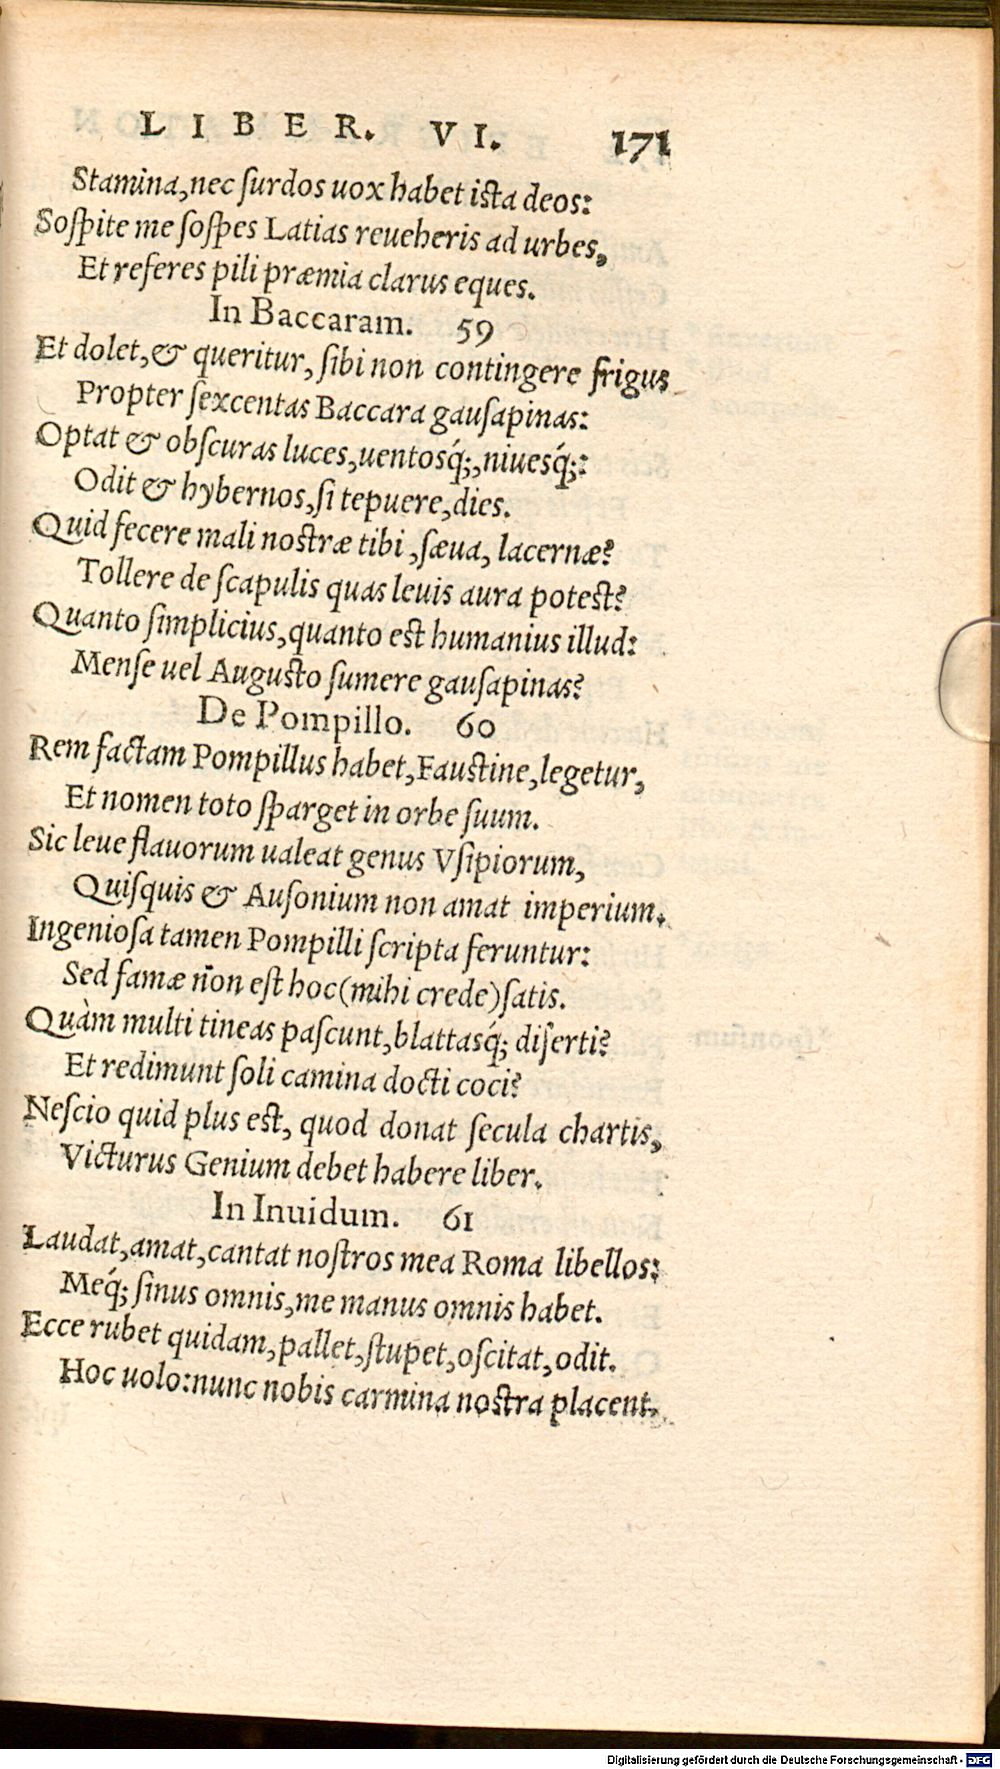 LIBER. VI. 171
Stamina, nec ſurdos uox habet iſta deos:
Soſpite me ſoſpes Latias reueheris ad urbes,
Et referes pili præmia clarus eques.
In Baccaram. 59
Et dolet, & queritur, ſibi non contingere frigus
Propter ſexcentas Baccara gauſapinas:
Optat & obſcuras luces, uentosq́;, niuesq́;:
Odit & hybernos, ſi tepuere, dies.
Quid fecere mali noſtræ tibi, ſæua, lacernæ?
Tollere de ſcapulis quas leuis aura poteſt?
Quanto ſimplicius, quanto eſt humanius illud:
Menſe uel Auguſto ſumere gauſapinas?
De Pompillo. 60
Rem factam Pompillus habet, Fauſtine, legetur,
Et nomen toto ſparget in orbe ſuum.
Sic leue flauorum ualeat genus Vſipiorum,
Quiſquis & Auſonium non amat imperium.
Ingenioſa tamen Pompilli ſcripta feruntur:
Sed famæ non eſt hoc (mihi crede) ſatis.
Quàm multi tineas paſcunt, blattasq́; diſerti?
Et redimunt ſoli camina docti coci?
Neſcio quid plus eſt, quod donat ſecula chartis,
Victurus Genium debet habere liber.
In Inuidum. 61
Laudat, amat, cantat noſtros mea Roma libellos:
Meq́; ſinus omnis, me manus omnis habet.
Ecce rubet quidam, pallet, ſtupet, oſcitat, odit.
Hoc uolo: nunc nobis carmina noſtra placent.
Digitalisierung gefördert durch die Deutsche Forschungsgemeinschaft - DFG